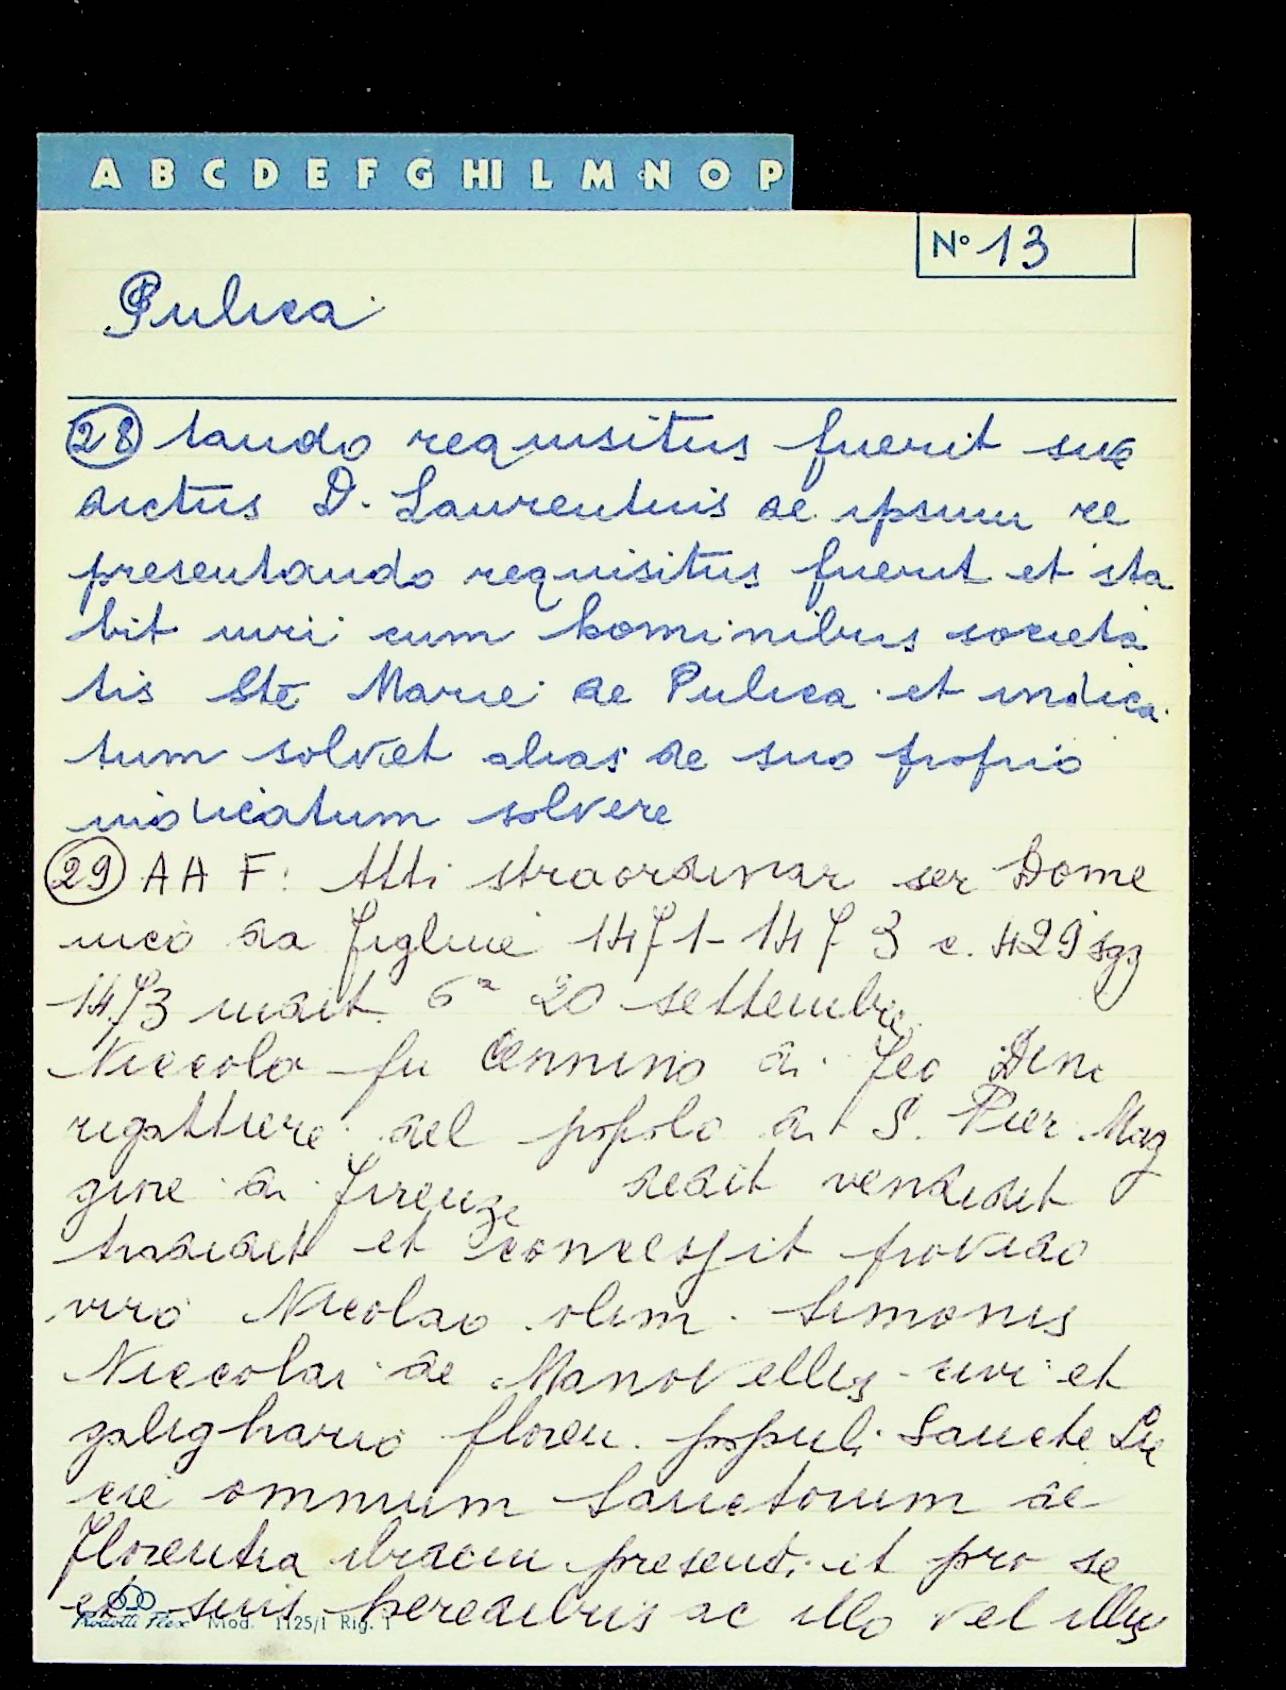 A B C D E F G HI L M N O P
N° 13
Pulica
28 tando requisitus fuerit sive
dictus D. Laurentius de ipsum re
presentando requisitus fuerit et sta
bit iuri cum hominibus societa
tis Ste Marie de Pulica et indica
tum solvet alias de suo proprio
indicatum solvere
29 A A F: Atti straordinar ser Dome
nico da Figline 1471-1473 c. 429 sgg
1473 indit. 6ª 20 settembre
Niccolo fu Cennino di Feo Dini
rigattiere del popolo di S. Pier Mag
giore di Firenze dedit vendidit
tradidit et concessit provido
viro Nicolao olim Simonis
Niccolai de Manovellis civi et
galighario floren. populi Sancte Lu
cie omnium Sanctorum de
Florentia ibidem presenti et pro se
et suis heredibus ac illo vel illis
Mod. 1125/1 Rig. 1